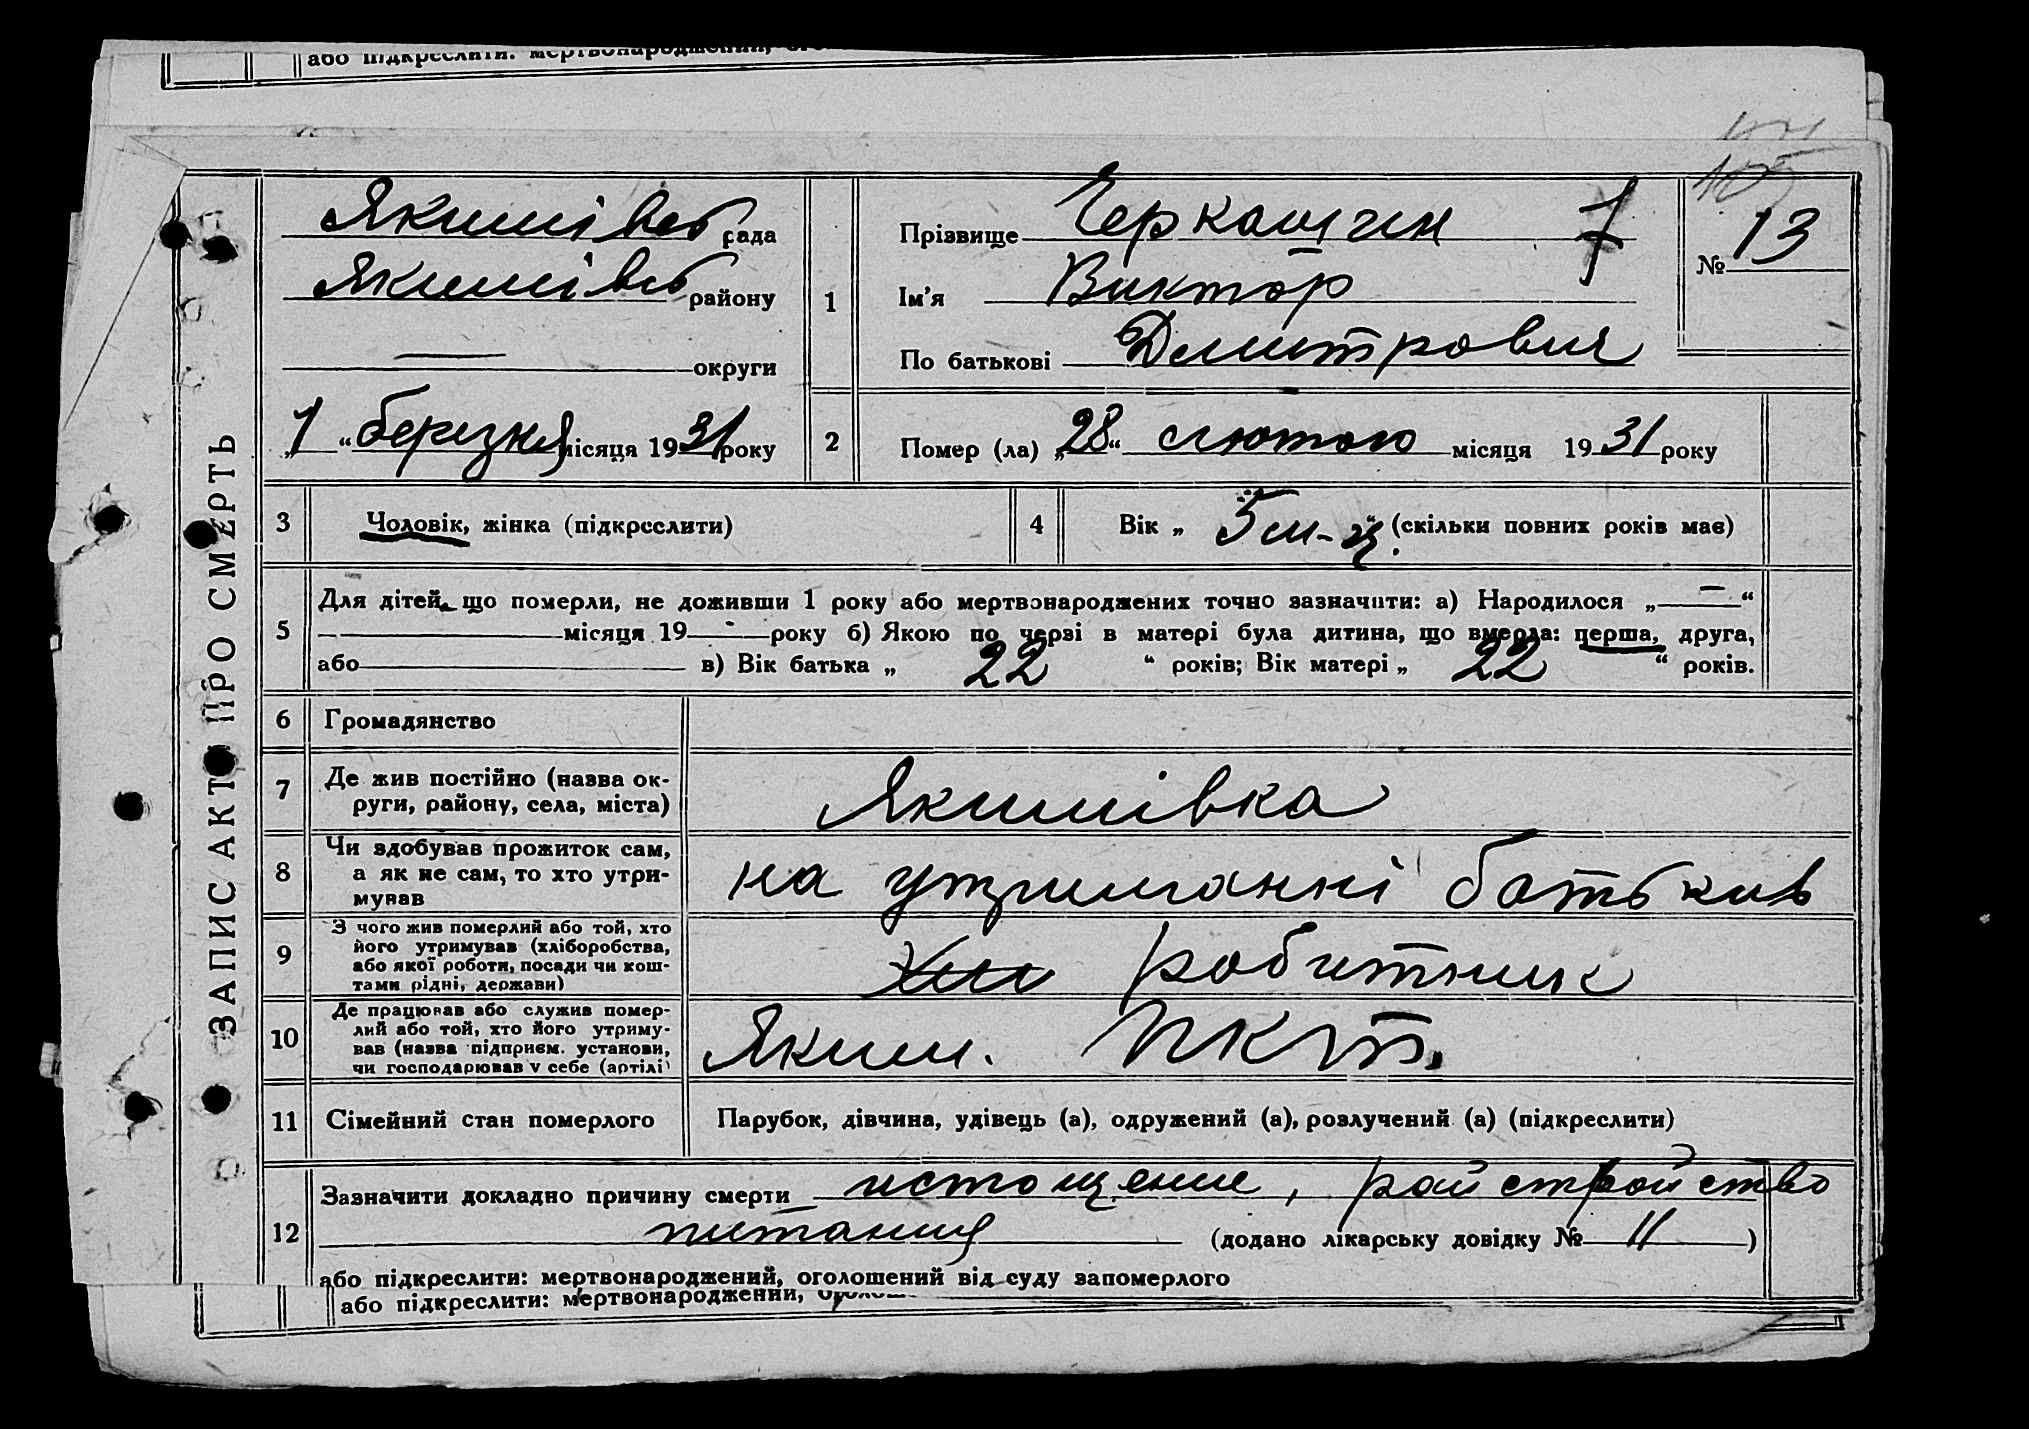 або підкреслити: мертвонароджений,
105
ЗАПИС АКТ ПРО СМЕРТЬ
Якимівсь рада
Якимівсь району
— округи
„1“ березня місяця 1931 року
1
Прізвище Черкашин
Ім'я Виктор
По батькові Дмитрович
№ 13
2
Помер (ла) „28“ лютого місяця 1931 року
3
Чоловік, жінка (підкреслити)
4
Вік „ 5 м-ц. “ (скільки повних років мав)
5
Для дітей, що померли, не доживши 1 року або мертвонароджених точно зазначити: а) Народилося „—“
— місяця 19 - року б) Якою по черзі в матері була дитина, що вмерла: перша, друга,
або в) Вік батька „ 22 “ років; Вік матері „ 22 “ років.
6 Громадянство
7 Де жив постійно (назва ок-
руги, району, села, міста)
Якимівка
8 Чи здобував прожиток сам,
а як не сам, то хто утри-
мував
на утриманні батьків
9 З чого жив померлий або той, хто
його утримував (хліборобства,
або якої роботи, посади чи кош-
тами рідні, держави)
робитник
10 Де працював або служив помер-
лий або той, хто його утриму-
вав (назва підприєм. установи,
чи господарював у себе (артілі)
Яким.
11 Сімейний стан померлого
Парубок, дівчина, удівець (а), одружений (а), розлучений (а) (підкреслити)
12
Зазначити докладно причину смерти истощение, райстройство
питания (додано лікарську довідку № 11 )
або підкреслити: мертвонароджений, оголошений від суду запомерлого
або підкреслити: мертвонароджений,